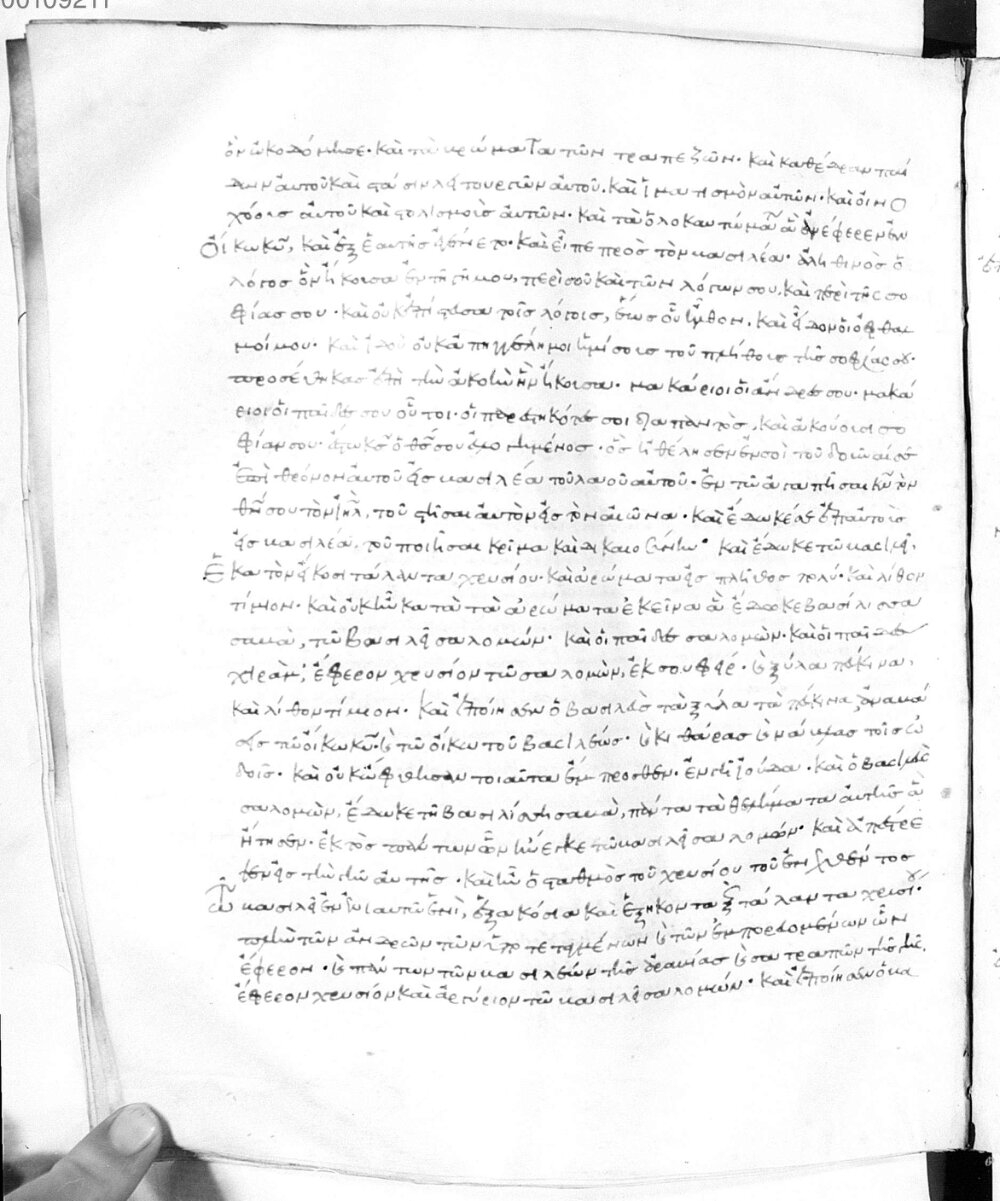 00109211
ὃν ὠκοδόμησε· καὶ τὰ βρώματα τῶν τραπεζῶν· καὶ καθέδραν παί
δων αὐτοῦ καὶ στάσιν λειτουργῶν αὐτοῦ· καὶ ἱματισμὸν αὐτῶν· καὶ οἰνο
χόοις αὐτοῦ καὶ στολισμοὶς αὐτῶν· καὶ τὰ ὁλοκαυτώματα ἃ ἀνέφερεν ἐν
οἴκω κυ, καὶ ἐξ ἑαυτῆς ἐγένετο· καὶ εἶπε πρὸς τὸν βασιλέα· ἀληθινὸς ὁ
λόγος ὃν ἤκουσα ἐν τῆ γῆ μου, περὶ σοῦ καὶ τῶν λόγων σου, καὶ περὶ τῆς σο
φίας σου· καὶ οὐκ ἐπίστευσα τοῖς λόγοις, ἕως οὗ ἦλθον, καὶ εἶδον οἱ ὀφθαλ
μοί μου· καὶ ἰδοὺ οὐκ ἀπηγγέλη μοι ἥμισοις τοῦ πλήθοις τῆς σοφίας σου·
προσέθηκας ἐπὶ τὴν ἀκοὴν ἣν ἤκουσα· μακάριοι οἱ ἄνδρες σου· μακά
ριοι οἱ παῖδές σου οὗτοι· οἱ παρεστηκότες σοι διαπαντὸς, καὶ ἀκούοισι σο
φίαν σου· ἔστω κς ὁ θς σου εὐλογημένος· ὃς ἠθέλησεν ἐν σοὶ τοῦ δοῦναί σε
ἐπὶ θρόνον αὐτοῦ εἰς βασιλέα τοῦ λαοῦ αὐτοῦ· ἐν τῶ ἀγαπῆσαι κν τὸν
θν σου τὸν ιηλ, τοῦ στῆσαι αὐτὸν εἰς τὸν αἰῶνα· καὶ ἔδωκέ σε ἐπ αὐτοὶς
εἰς βασιλέα, τοῦ ποιῆσαι κρίμα καὶ δικαιοσύνην· καὶ ἔδωκε τῶ βασιλεῖ,
ἑκατὸν εἴκοσι τάλαντα χρυσίου· καὶ ἀρώματα εἰς πλῆθος πολύ· καὶ λίθον
τίμιον· καὶ οὐκ ἦν κατὰ τὰ ἀρώματα ἐκεῖνα ἃ ἔδωκε βασίλισσα
σαβὰ, τῶ βασιλεῖ σαλομών· καὶ οἱ παῖδες σαλομὼν· καὶ οἱ παῖδες
χιρὰμ, ἔφερον χρυσίον τῶ σαλομὼν, ἐκ σουφείρ· καὶ ξύλα πεύκινα,
καὶ λίθον τίμιον· καὶ ἐποίησεν ὁ βασιλεὺς τὰ ξύλα τὰ πεύκινα, ἀναβά
σεις τῶ οἴκω κυ· καὶ τῶ οἴκω τοῦ βασιλέως· καὶ κιθάρας καὶ νάβλας τοῖς ὠ
δοῖς· καὶ οὐκ ὤφθησαν τοιαῦτα ἔμπροσθεν· ἐν γῆ ἰούδα· καὶ ὁ βασιλεὺς
σαλομὼν, ἔδωκε τῆ βασιλίσση σαβὰ, πάντα τὰ θελήματα αὐτῆς ἃ
ἤτησεν· ἐκτὸς πάντων ὧν ἤνεγκε τῶ βασιλεῖ σαλομών· καὶ ἀπέστρε
ψεν εἰς τὴν γῆν αὐτῆς· καὶ ἦν ὁ σταθμὸς τοῦ χρυσίου τοῦ ἐνεχθέντος
τῶ βασιλεῖ ἐν ἐνιαυτῶ ἑνὶ, ἑξακόσια καὶ ἑξήκοντα ἓξ τάλαντα χρυσίου·
πλὴν τῶν ἀνδρῶν τῶν ὑποτεταγμένων καὶ τῶν ἐμπορευομένων ὧν
ἔφερον· καὶ πάντων τῶν βασιλέων τῆς ἀραβίας καὶ σατραπῶν τῆς γῆς,
ἔφερον χρυσίον καὶ ἀργύριον τῶ βασιλεῖ σαλομών· καὶ ἐποίησεν ὁ βα